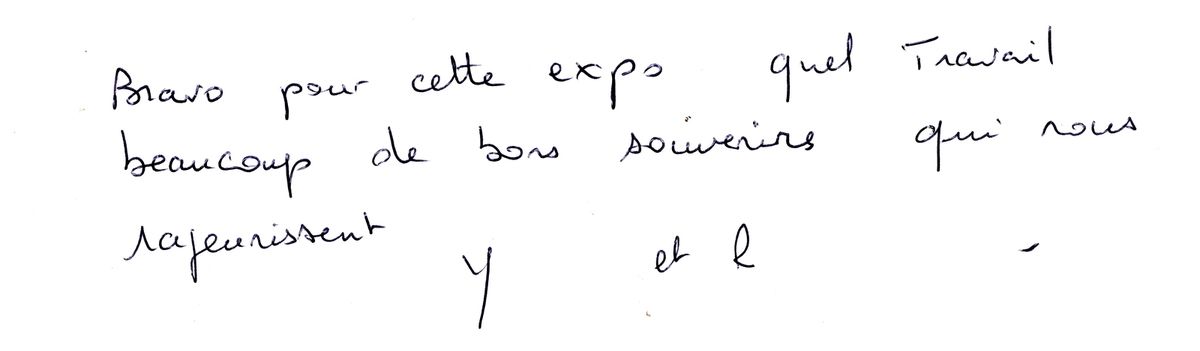 Bravo pour cette expo quel Travail
beaucoup de bons souvenirs qui nous
rajeunissent
Y et l -